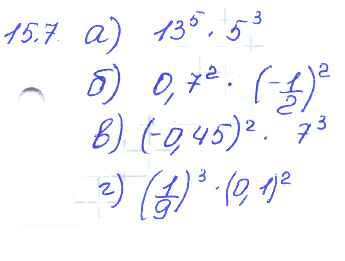 15.7. а) 13⁵ · 5³
б) 0,7² · (-1/2)²
в) (-0,45)² · 7³
г) (1/9)³ · (0,1)²